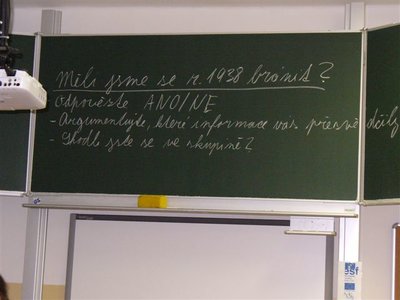 Měli jsme se v r. 1938 bránit?
odpovězte ANO/NE
- Argumentujte, které informace vás přesvědčily
- Shodli jste se ve skupině?
esf